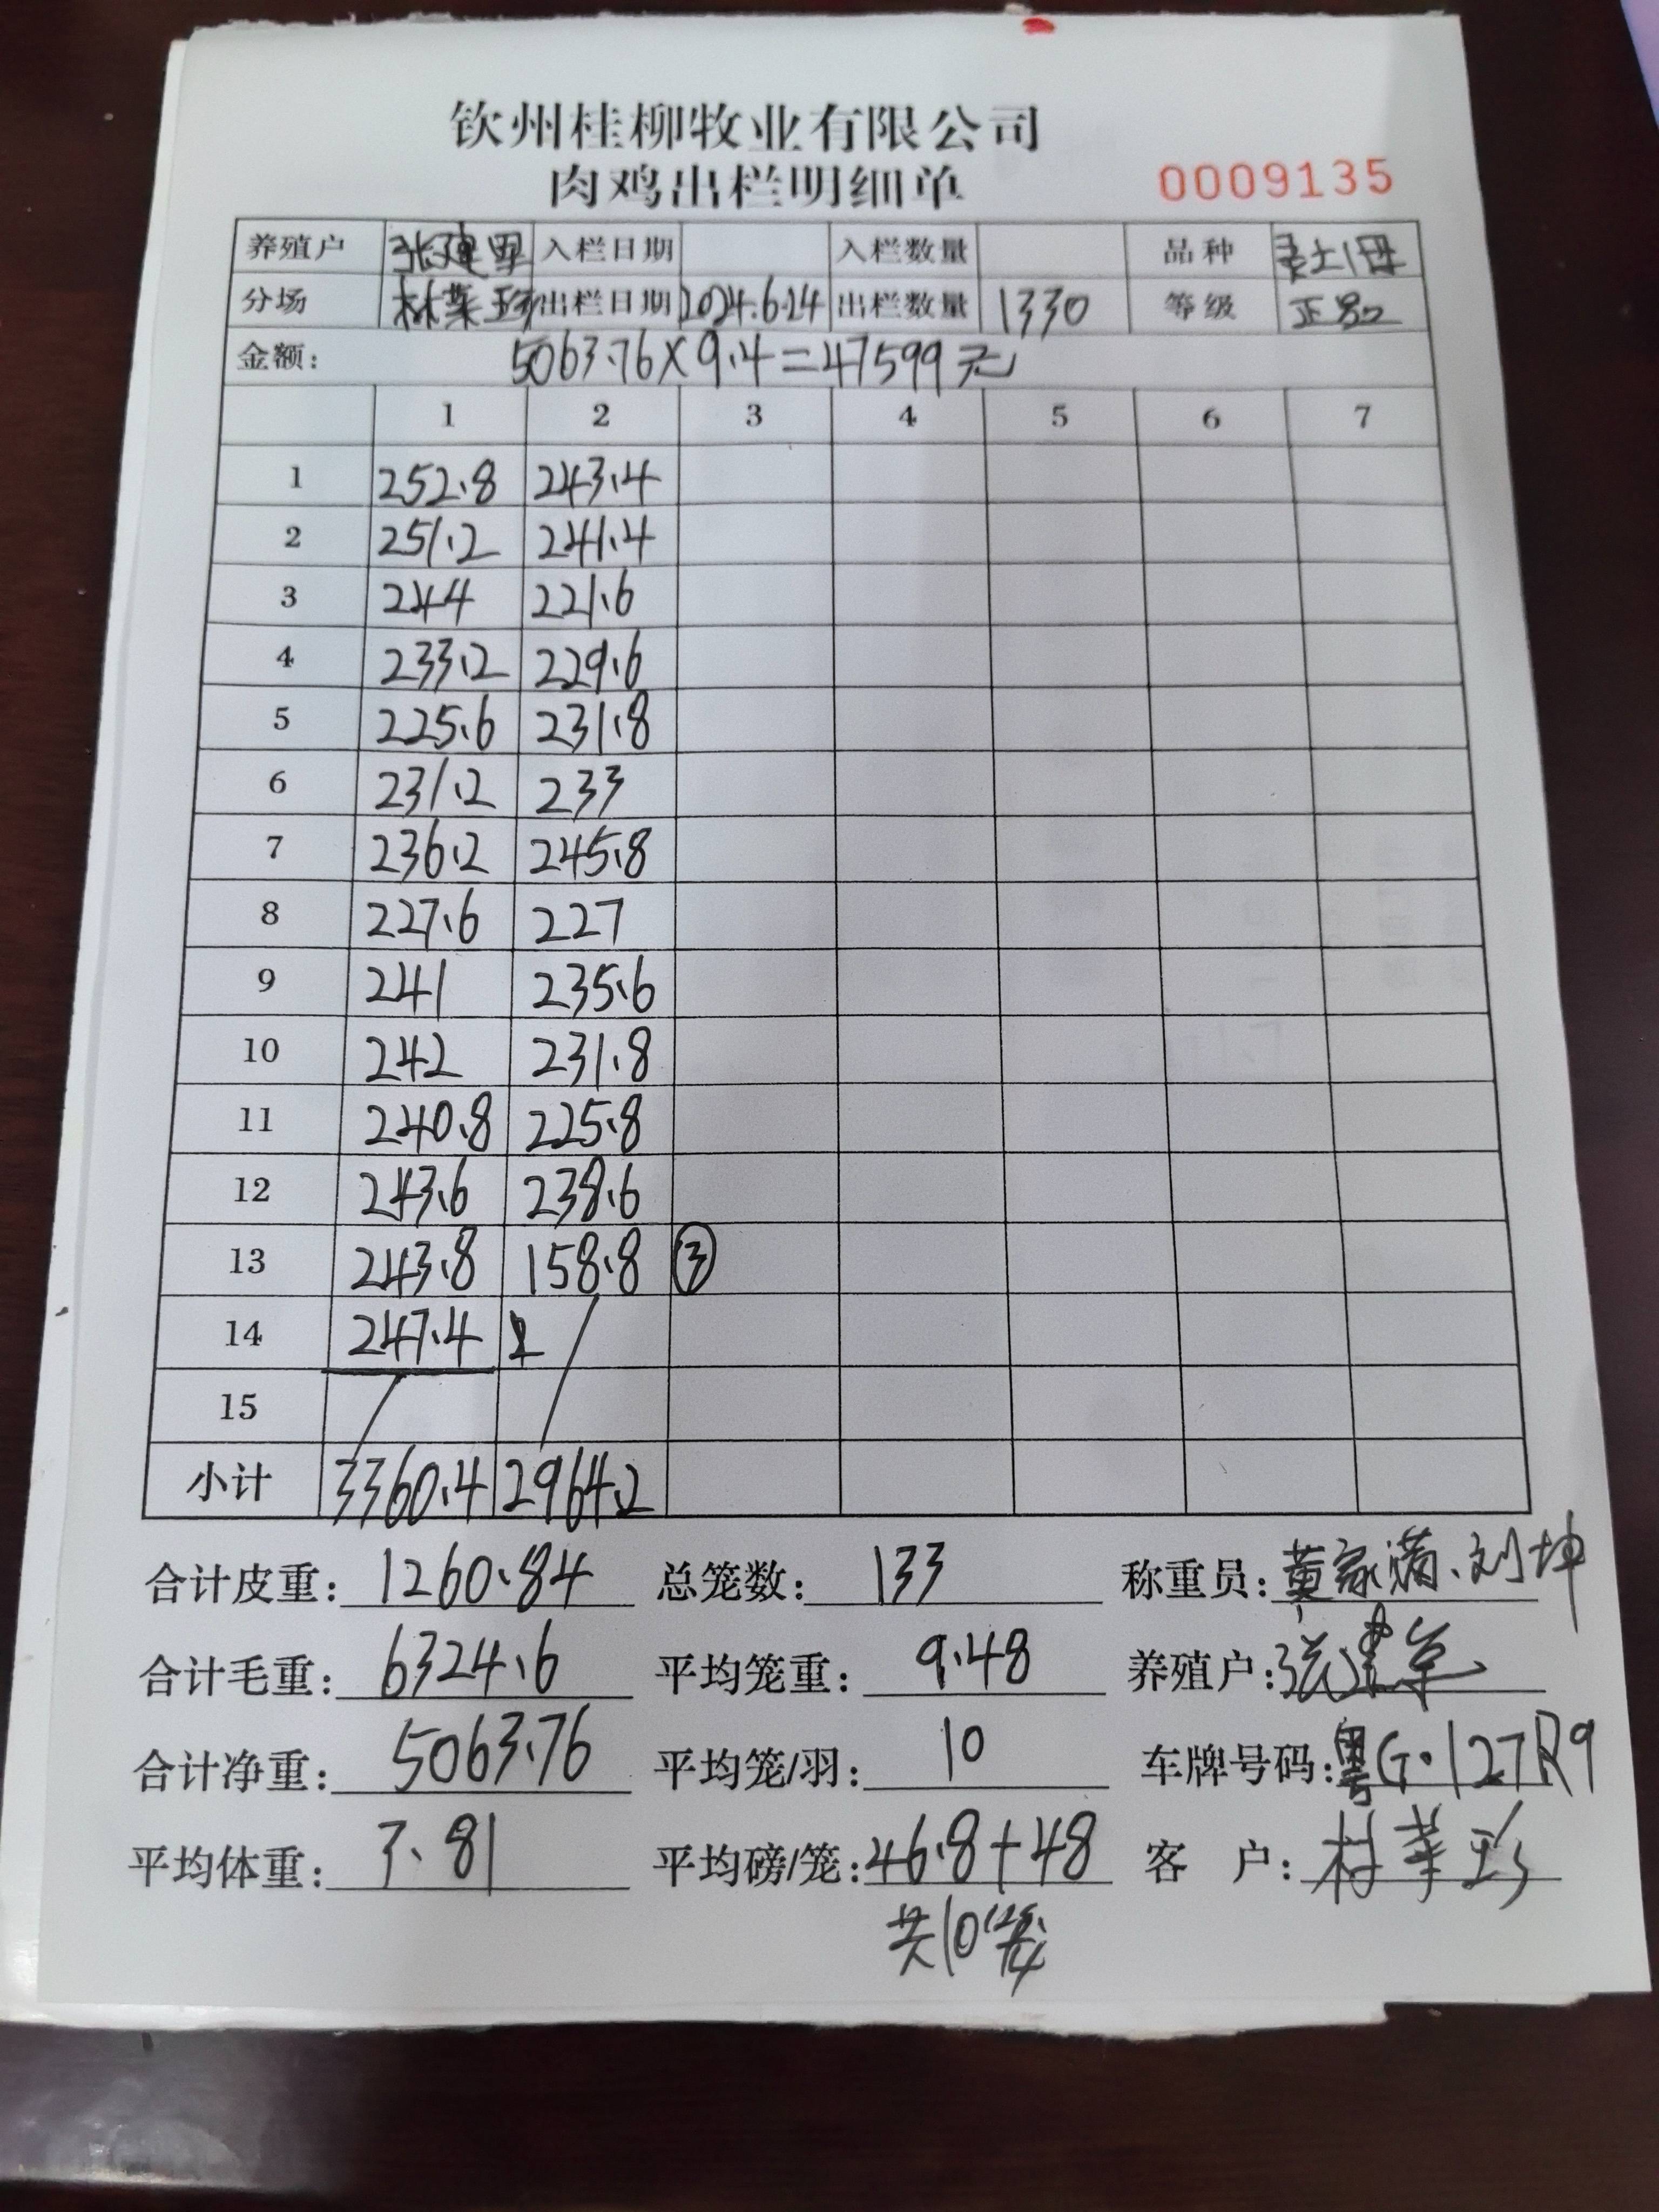 钦州桂柳牧业有限公司
肉鸡出栏明细单 0009135
养殖户 张建 入栏日期 入栏数量 品种 土1母
分场 林 珍 出栏日期 2024.6.24 出栏数量 1330 等级 正
金额: 5063.76×9.4=47599元
1 2 3 4 5 6 7
1 252.8 243.4
2 251.2 241.4
3 244 221.6
4 233.2 229.6
5 225.6 231.8
6 231.2 233
7 236.2 245.8
8 227.6 227
9 241 235.6
10 242 231.8
11 240.8 225.8
12 243.6 238.6
13 243.8 158.8 ③
14 247.4
15
小计 3360.4 2964.2
合计皮重: 1260.84 总笼数: 133 称重员: 黄家满、刘坤
合计毛重: 6324.6 平均笼重: 9.48 养殖户: 张建
合计净重: 5063.76 平均笼/羽: 10 车牌号码: 粤G·127R9
平均体重: 3.81 平均磅/笼: 46.8+48 客 户: 珍
共10笼